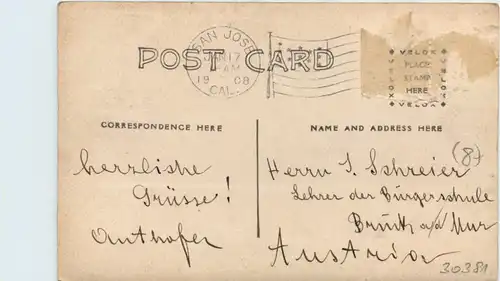 SAN JOSE
JAN 17
AM
1908
CAL.
POST CARD
VELOX
PLACE
STAMP
HERE
VELOX
CORRESPONDENCE HERE
NAME AND ADDRESS HERE
herzliche
Grüsse!
Anthofer
(87)
Herrn J. Schreier
Lehrer der Bürgerschule
Bruck a/d Mur
Austria
30381